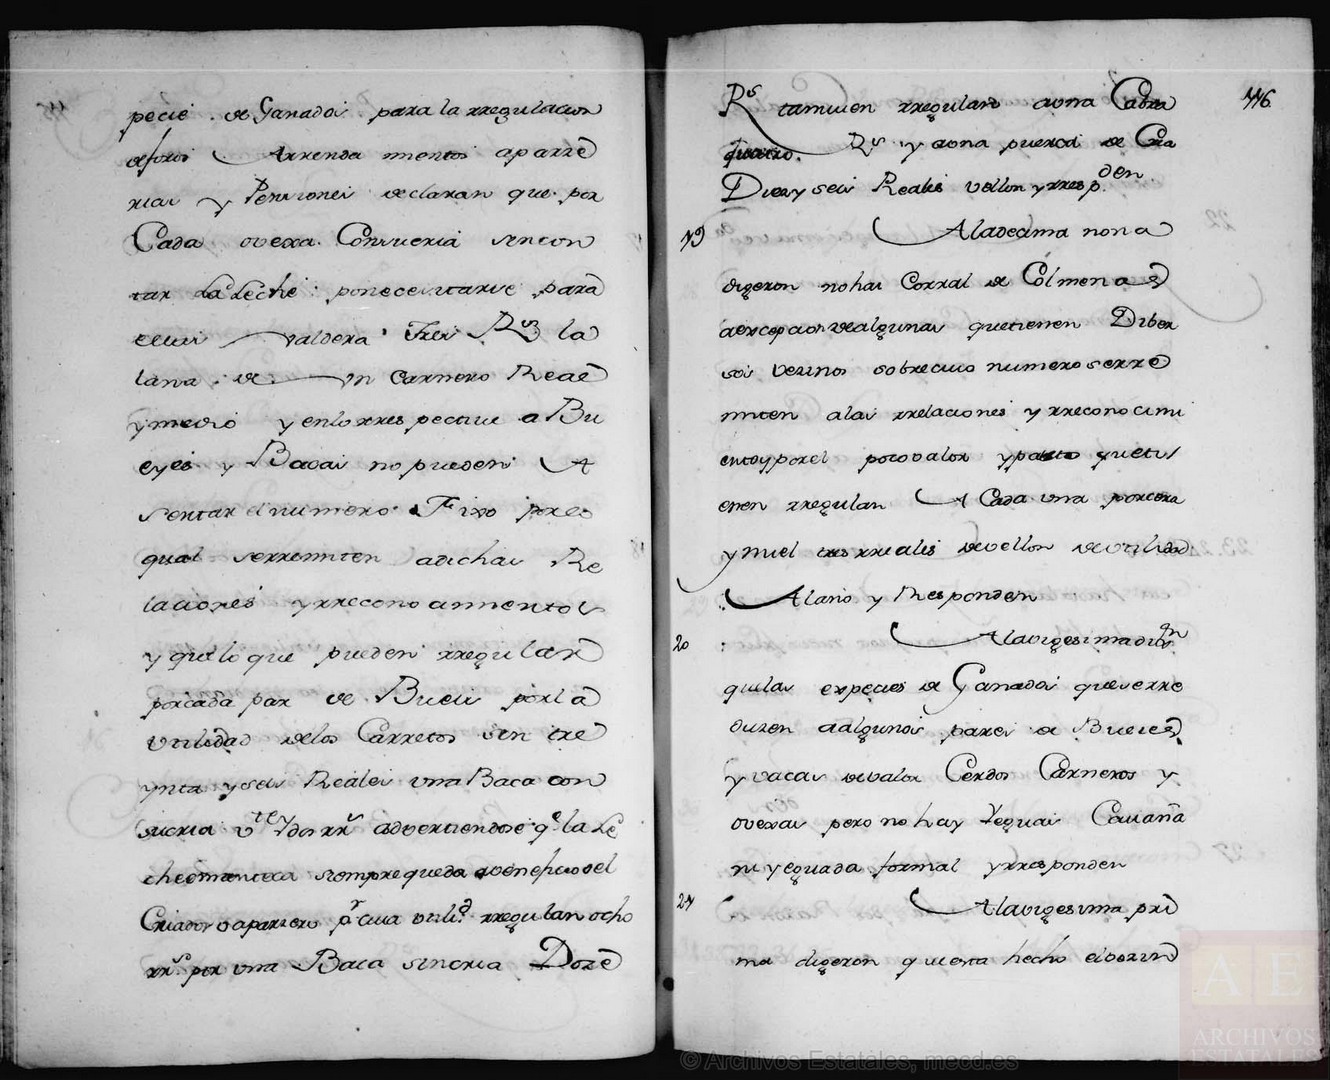 pecie de Ganados para la rregulacion
de foros Arrendamientos aparze
rias y Penssiones declaran que por
Cada ovexa Consucria sincon
tar La Leche ponecesitarse para
valdexa tres Rs la
lana de Un Carnero Reale
ymedio y enlo rres pectiue a Bu
eyes y Bacas no pueden A
sentar el numero Fixo porlo
qual serremiten adichas Re
laciones yrrecono cimientos
y quelo que pueden rregular
porcada par de Bueis porla
Utilidad delos Carretos son tre
ynta yseis Reales una Baca con
sucria vte y dos rrs advertiendose qe la Le
cheomanteca siempre queda a veneficio del
Criador o aparzero pr cuia utilid rregulan ocho
rrs por una Baca sincria Doze
Rs tamvien rregulan auna Cabra 116
quatro Rs y auna puerca de Cria
Diezy seis Reales vellon yrresp.den
19 Aladecima nona
digeron no hai Corral de Colmenas
aexcepcion dealgunas quetienen Diber
sos vezinos sobrecuio numero serre
miten alas rrelaciones y rreconocimi
entoyporel pocovalor ypasto quetii
enen rregulan A Cada una porcera
y miel tres rreales devellon deutilidad
Alaño y Responden
20 Alavigesimadixn
quelas expecies de Ganados queserre
duzen aalgunos pares de Bueies
y vacas devalor Cerdos Carneros y
ovexas pero no hay Yeguas Cavaña
ni yeguada formal yrresponden
21 Alavigesima pri
ma digeron questa hecho elvezin
© Archivos Estatales, mecd.es
AE
ARCHIVOS
ESTATALES